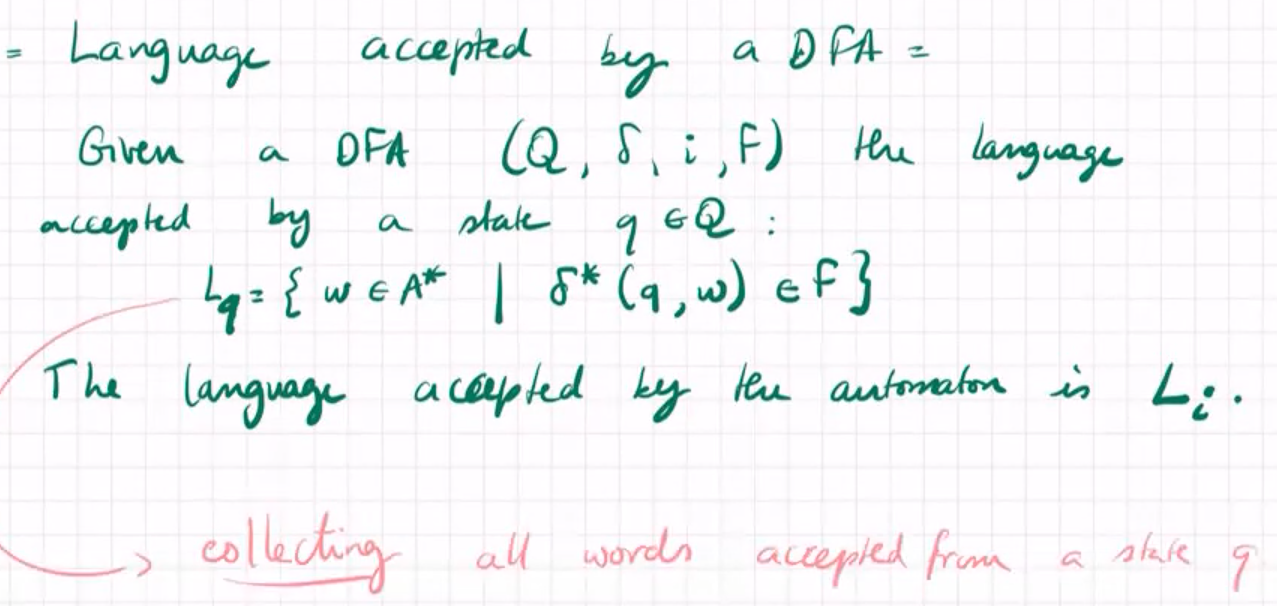 = Language accepted by a DFA =
Given a DFA (Q, δ, i, F) the language
accepted by a state q ∈ Q :
L_q = { w ∈ A* | δ* (q, w) ∈ F }
The language accepted by the automaton is L_i.
collecting all words accepted from a state q